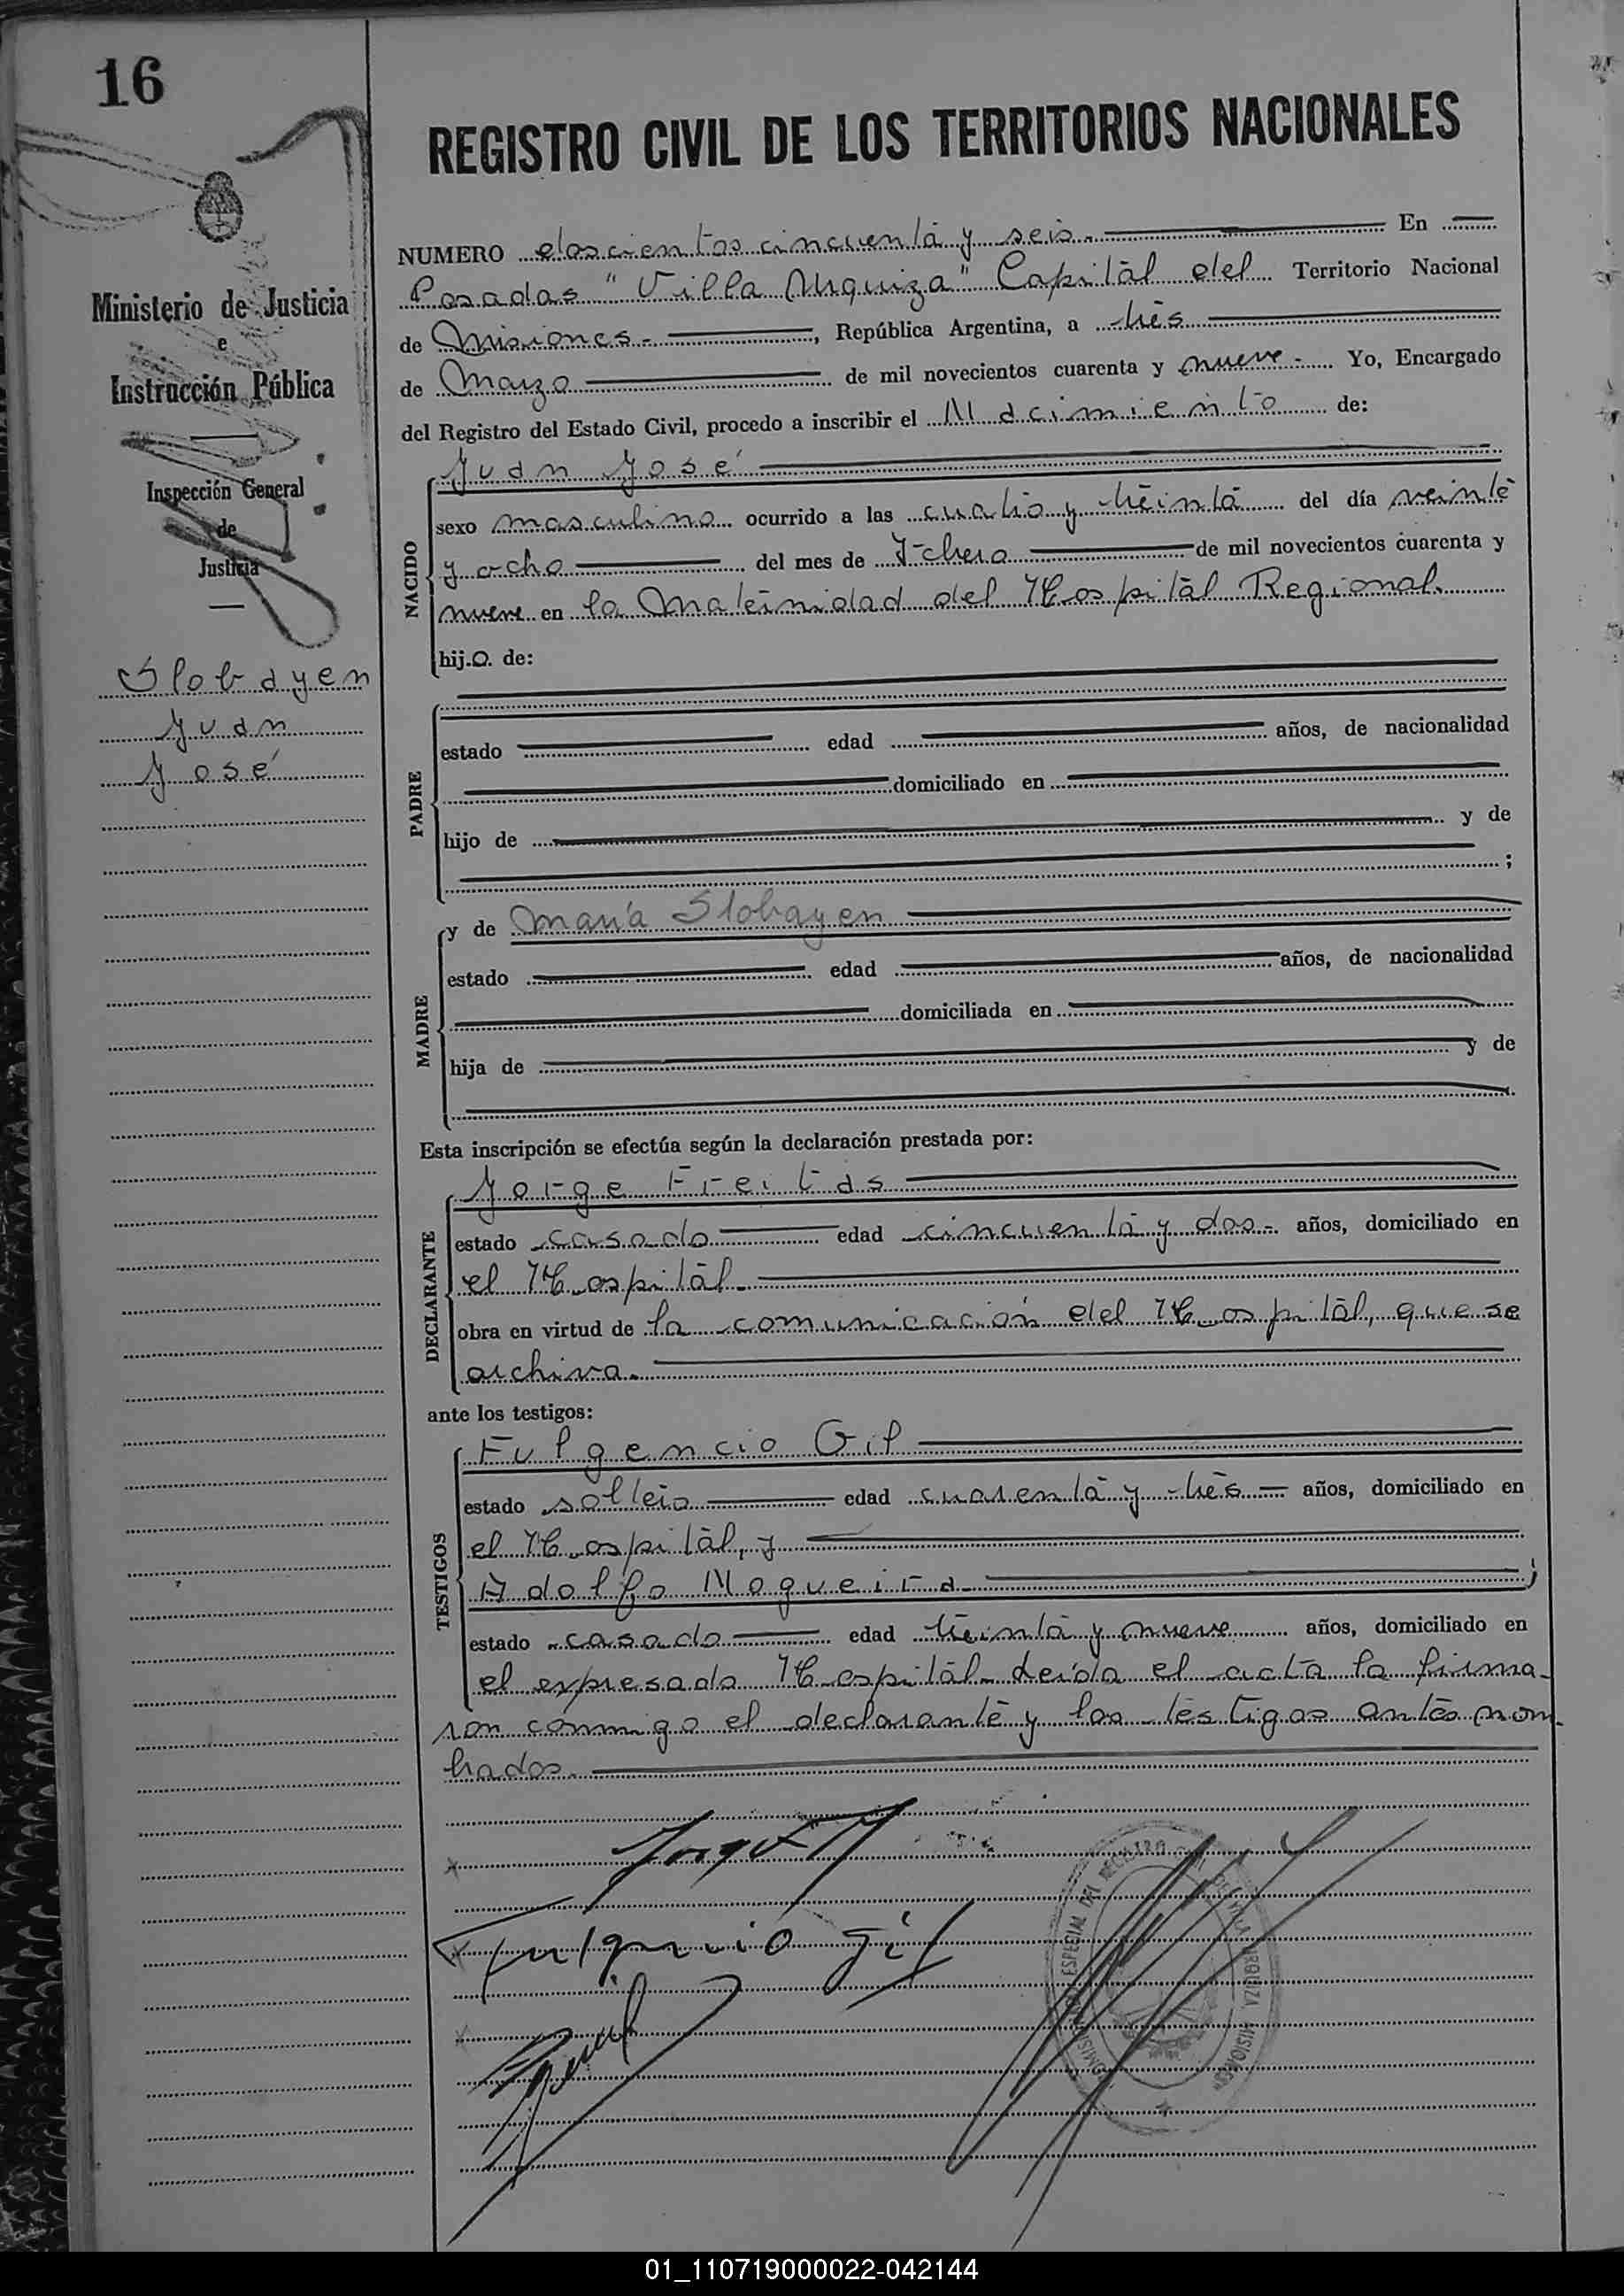 16
REGISTRO CIVIL DE LOS TERRITORIOS NACIONALES
Ministerio de Justicia
e
Instrucción Pública
Inspección General
de
Justicia
Slobayen
Juan
José
NUMERO doscientos cincuenta y seis. En
Posadas "Villa Urquiza" Capital del Territorio Nacional
de Misiones. , República Argentina, a tres
de Marzo de mil novecientos cuarenta y nueve. Yo, Encargado
del Registro del Estado Civil, procedo a inscribir el Nacimiento de:
NACIDO
Juan José
sexo masculino ocurrido a las cuatro y treinta del día veinte
y ocho del mes de de mil novecientos cuarenta y
nueve en la Maternidad del Hospital Regional.
hijo de:
PADRE
estado edad años, de nacionalidad
domiciliado en
hijo de y de
;
MADRE
y de María Slobayen
estado edad años, de nacionalidad
domiciliada en
hija de y de
Esta inscripción se efectúa según la declaración prestada por:
DECLARANTE
Jorge Freitas
estado casado edad cincuenta y dos.- años, domiciliado en
el Hospital.
obra en virtud de la comunicación del Hospital, que se
archiva.
ante los testigos:
TESTIGOS
Fulgencio Gil
estado soltero edad cuarenta y tres años, domiciliado en
el Hospital, y
Adolfo Nogueira ;
estado casado edad treinta y nueve años, domiciliado en
el expresado Hospital. Leída el acta la firma-
ron conmigo el declarante y los testigos antes nom-
brados.
Fulgencio Gil
ESPECIAL DEL REGISTRO VILLA URQUIZA MISIONES
01_110719000022-042144